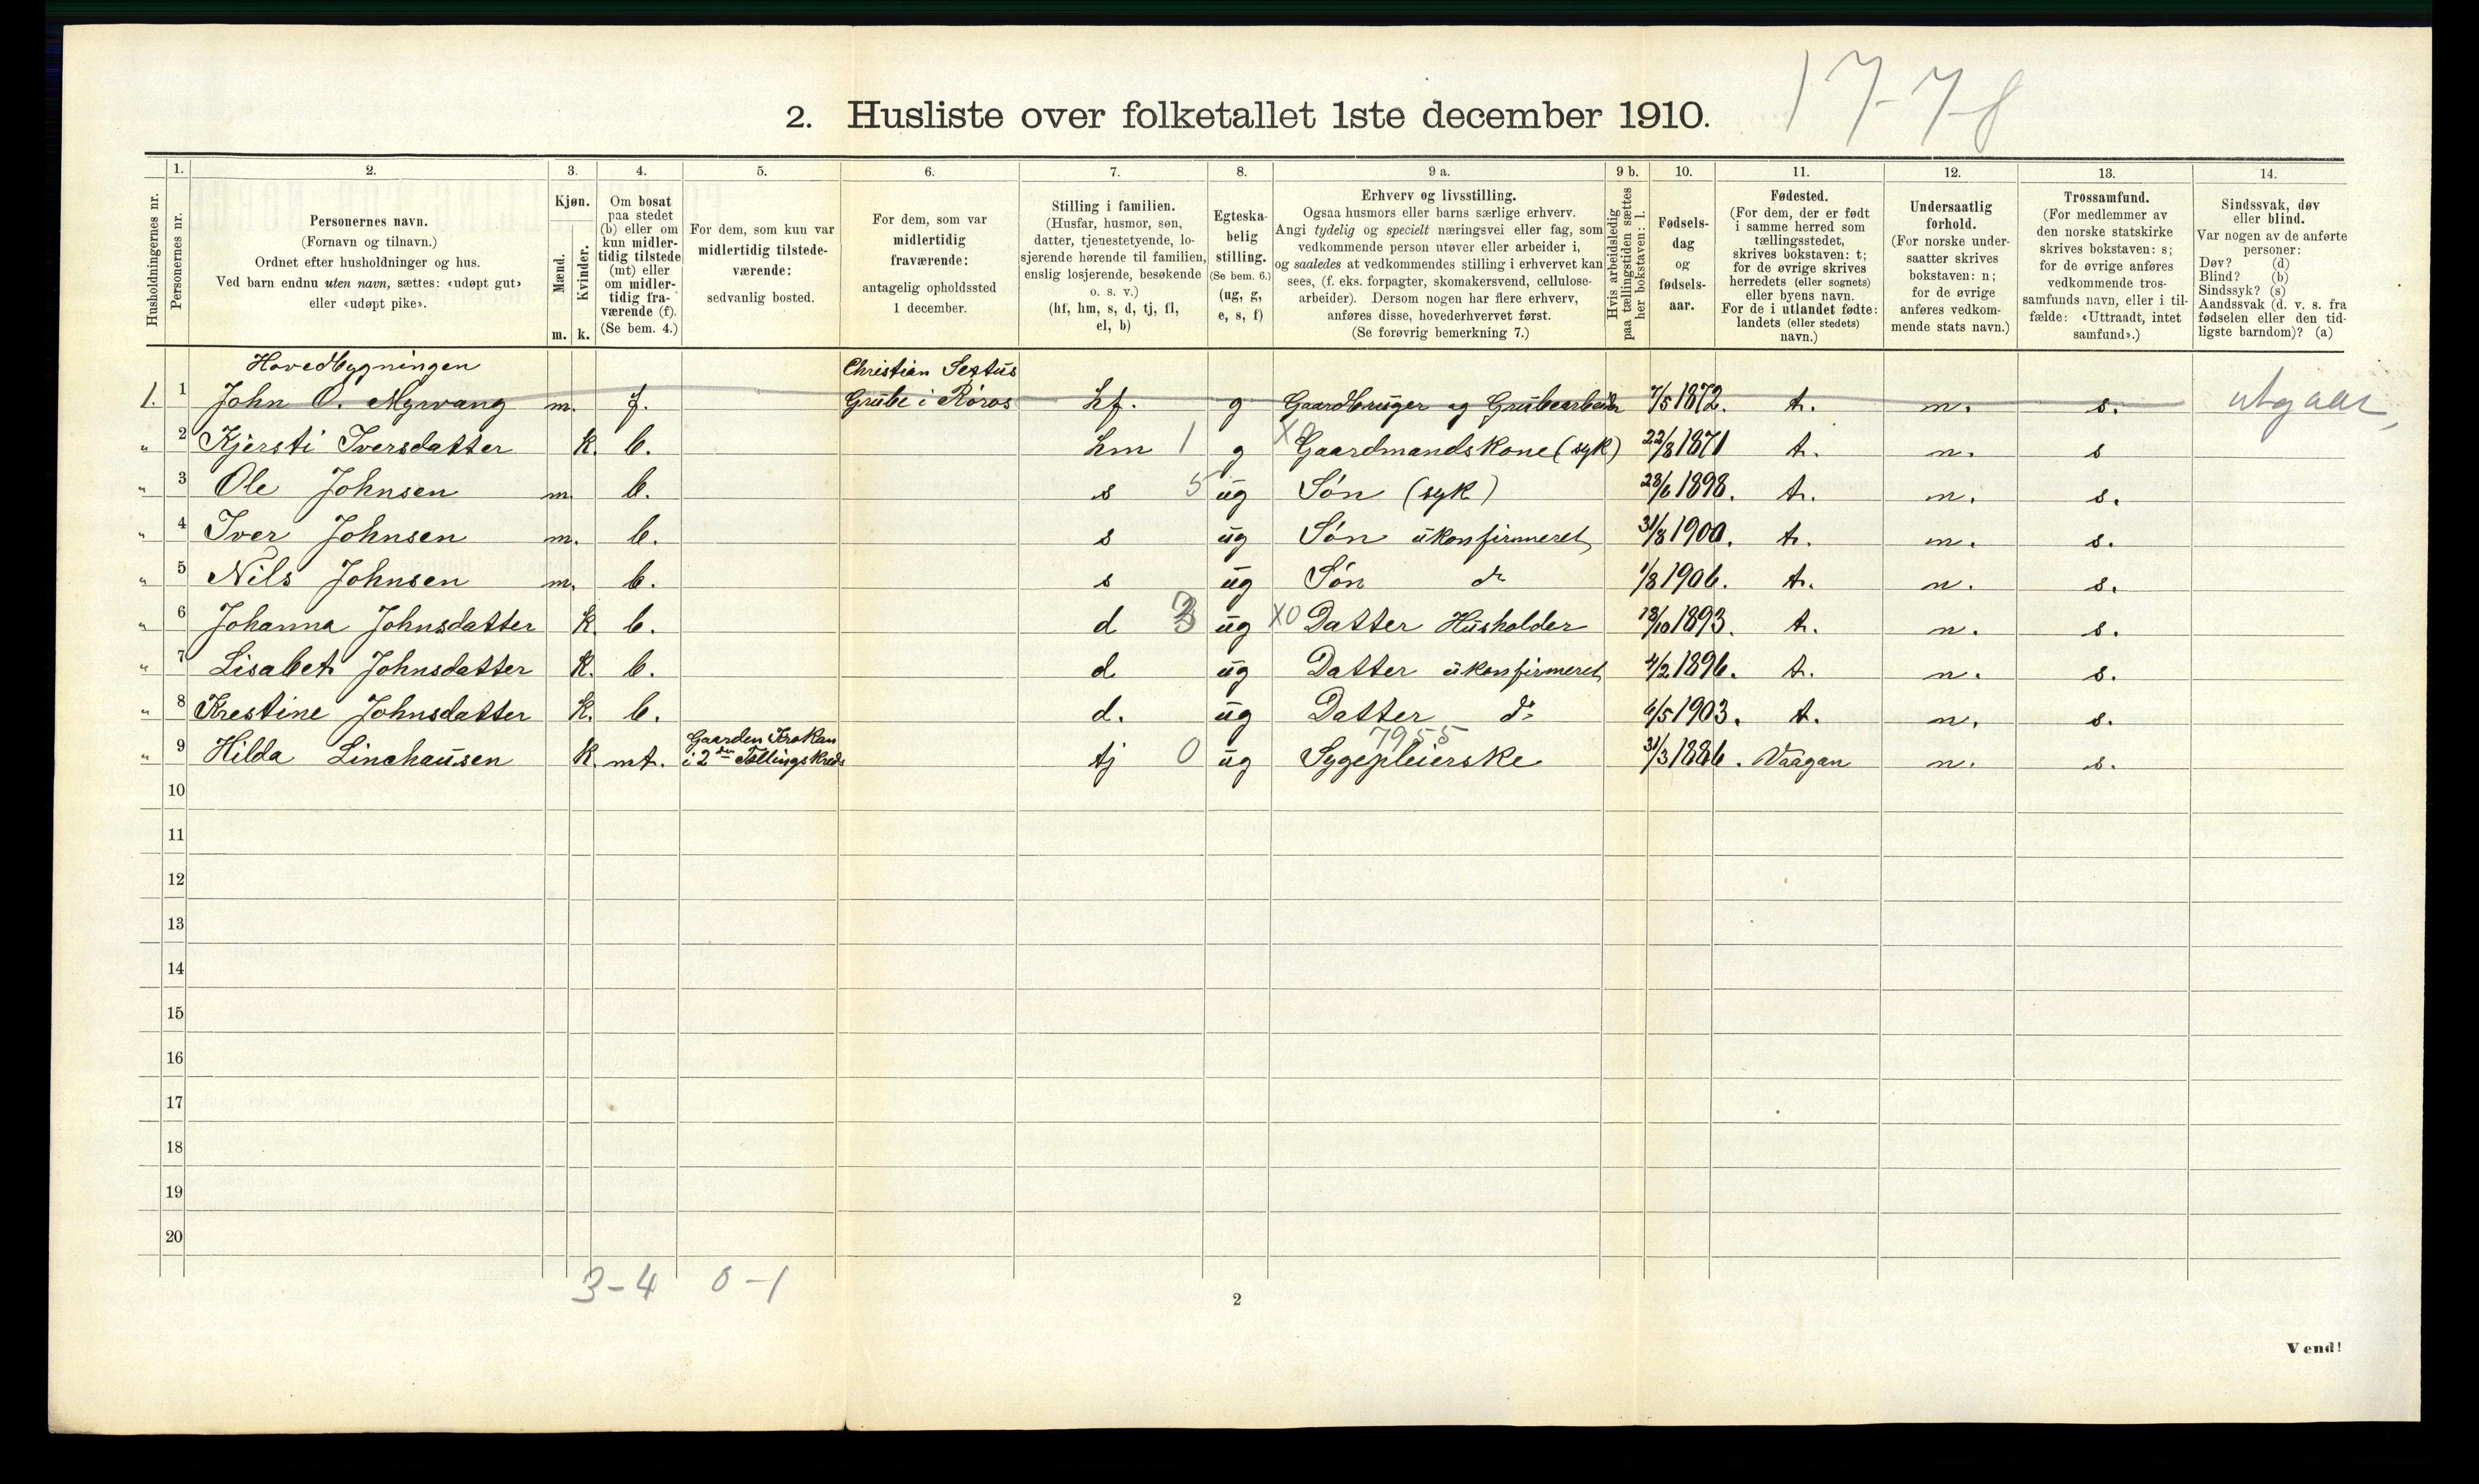 17-7-8
2. Husliste over folketallet 1ste december 1910.
Husholdningernes nr.
1. Personernes nr.
2. Personernes navn.
(Fornavn og tilnavn.)
Ordnet efter husholdninger og hus.
Ved barn endnu uten navn, sættes: «udøpt gut»
eller «udøpt pike».
3. Kjøn.
Mænd. Kvinder.
m. k.
4. Om bosat
paa stedet
(b) eller om
kun midler-
tidig tilstede
(mt) eller
om midler-
tidig fra-
værende (f).
(Se bem. 4.)
5. For dem, som kun var
midlertidig tilstede-
værende:
sedvanlig bosted.
6. For dem, som var
midlertidig
fraværende:
antagelig opholdssted
1 december.
7. Stilling i familien.
(Husfar, husmor, søn,
datter, tjenestetyende, lo-
sjerende hørende til familien,
enslig losjerende, besøkende
o. s. v.)
(hf, hm, s, d, tj, fl,
el, b)
8. Egteska-
belig
stilling.
(Se bem. 6.)
(ug, g,
e, s, f)
9 a. Erhverv og livsstilling.
Ogsaa husmors eller barns særlige erhverv.
Angi tydelig og specielt næringsvei eller fag, som
vedkommende person utøver eller arbeider i,
og saaledes at vedkommendes stilling i erhvervet kan
sees, (f. eks. forpagter, skomakersvend, cellulose-
arbeider). Dersom nogen har flere erhverv,
anføres disse, hovederhvervet først.
(Se forøvrig bemerkning 7.)
9 b. Hvis arbeidsledig
paa tællingstiden sættes
her bokstaven: l.
10. Fødsels-
dag
og
fødsels-
aar.
11. Fødested.
(For dem, der er født
i samme herred som
tællingsstedet,
skrives bokstaven: t;
for de øvrige skrives
herredets (eller sognets)
eller byens navn.
For de i utlandet fødte:
landets (eller stedets)
navn.)
12. Undersaatlig
forhold.
(For norske under-
saatter skrives
bokstaven: n;
for de øvrige
anføres vedkom-
mende stats navn.)
13. Trossamfund.
(For medlemmer av
den norske statskirke
skrives bokstaven: s;
for de øvrige anføres
vedkommende tros-
samfunds navn, eller i til-
fælde: «Uttraadt, intet
samfund».)
14. Sindssvak, døv
eller blind.
Var nogen av de anførte
personer:
Døv? (d)
Blind? (b)
Sindssyk? (s)
Aandssvak (d. v. s. fra
fødselen eller den tid-
ligste barndom)? (a)
Hovedbygningen Christian Sextus
1. 1 John O. Myrvang m. f. Grube i Røros hf. g Gaardbruger og Grubearbeider 7/5 1872. t. n. s. utgaar
" 2 Kjersti Iversdatter k. b. hm 1 g X0 Gaardmandskone (syk) 22/8 1871 t. n. s
" 3 Ole Johnsen m. b. s 5 ug Søn (syk) 28/6 1898. t. n. s.
" 4 Iver Johnsen m. b. s ug Søn ukonfirmeret 31/8 1900. t. n. s.
" 5 Nils Johnsen m. b. s ug Søn do 1/8 1906. t. n. s.
" 6 Johanna Johnsdatter k. b. d ug X0 Datter Husholder 18/10 1893. t. n. s.
" 7 Lisabet Johnsdatter k. b. d ug Datter ukonfirmeret 4/2 1896. t. n. s.
" 8 Krestine Johnsdatter k. b. d. ug Datter do 6/5 1903. t. n. s.
Gaarden Krokan 7955
" 9 Hilda Linchausen k. mt. i 2den Tællingskreds tj 0 ug Sygepleierske 31/3 1886. Vaagan n. s.
10
11
12
13
14
15
16
17
18
19
20
3-4 0-1
2
Vend!